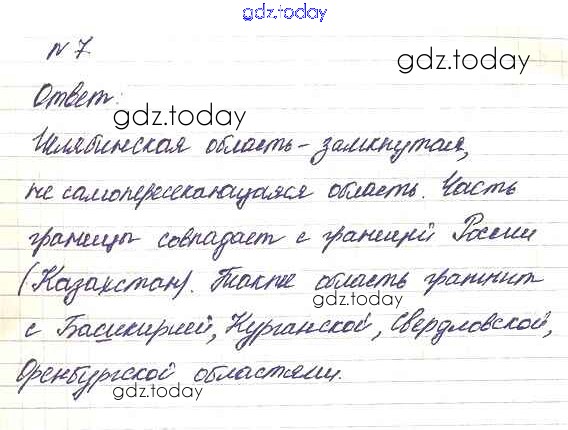 gdz.today
N 7.
gdz.today
Ответ:
gdz.today
Челябинская область - замкнутая,
не самопересекающаяся область. Часть
границы совпадает с границей России
(Казахстан). Также область граничит
gdz.today
с Башкирией, Курганской, Свердловской,
Оренбургской областями.
gdz.today